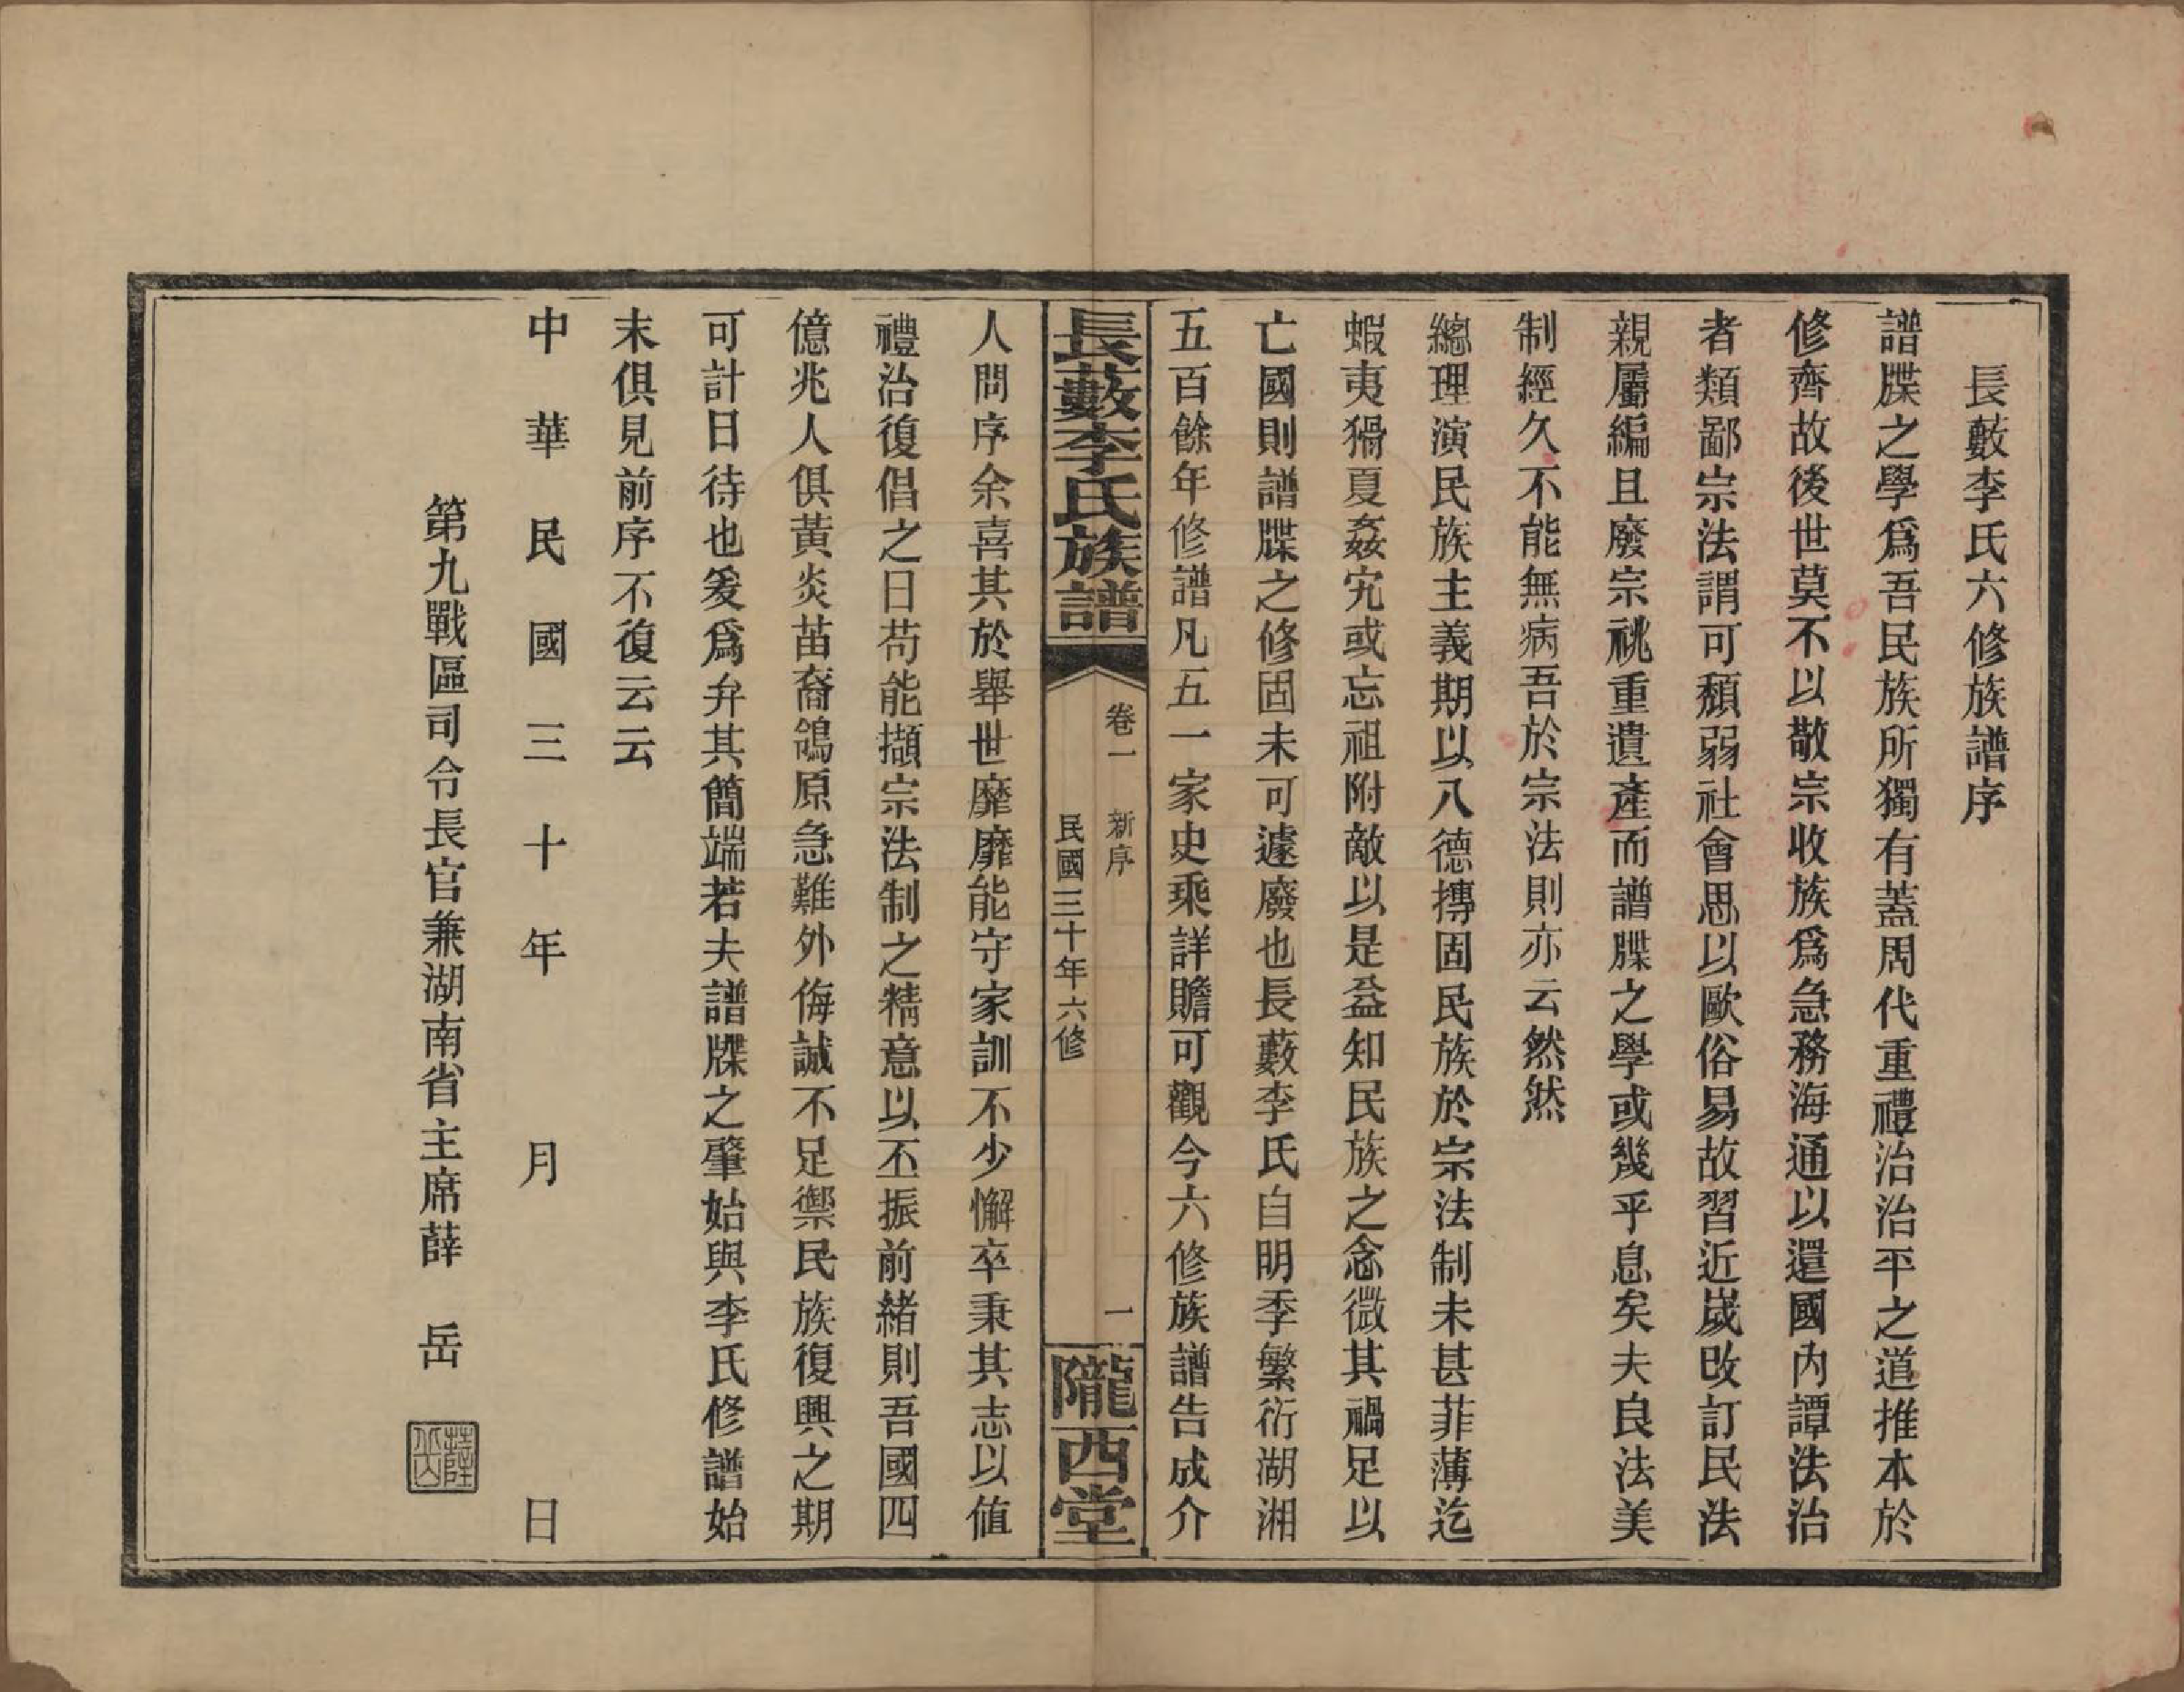 長藪李氏六修族譜序
譜牒之學爲吾民族所獨有蓋周代重禮治治平之道推本於
修齊故後世莫不以敬宗收族爲急務海通以還國內譚法治
者類鄙宗法謂可頹弱社會思以歐俗易故習近歲改訂民法
親屬編且廢宗祧重遺產而譜牒之學或幾乎息矣夫良法美
制經久不能無病吾於宗法則亦云然然
總理演民族主義期以八德摶固民族於宗法制未甚菲薄迄
蝦夷猾夏姦宄或忘祖附敵以是益知民族之念微其禍足以
亡國則譜牒之修固未可遽廢也長藪李氏自明季繁衍湖湘
五百餘年修譜凡五一家史乘詳贍可觀今六修族譜告成介
長藪李氏族譜
卷一 新序 一
民國三十年六修
隴西堂
人問序余喜其於舉世靡靡能守家訓不少懈卒秉其志以值
禮治復倡之日苟能擷宗法制之精意以丕振前緒則吾國四
億兆人俱黃炎苗裔鴒原急難外侮誠不足禦民族復興之期
可計日待也爰爲弁其簡端若夫譜牒之肇始與李氏修譜始
末俱見前序不復云云
中華民國三十年 月 日
第九戰區司令長官兼湖南省主席薛 岳
薛岳